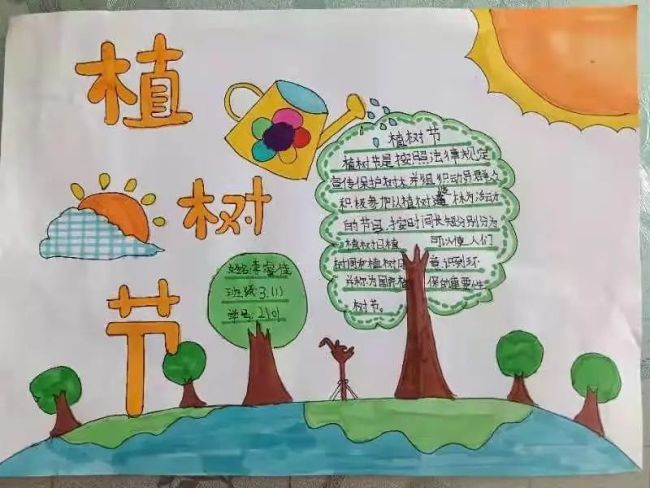 植
树
节
植树节
植树节是按照法律规定
宣传保护树木并组织动员群众
积极参加以植树造林为活动
的节日,按时间长短分别分为
植树日植 可以使人们
树周和植树月 意识到环
并称为国际植 保的重要性
树节。
班级:3.(1)
学号: